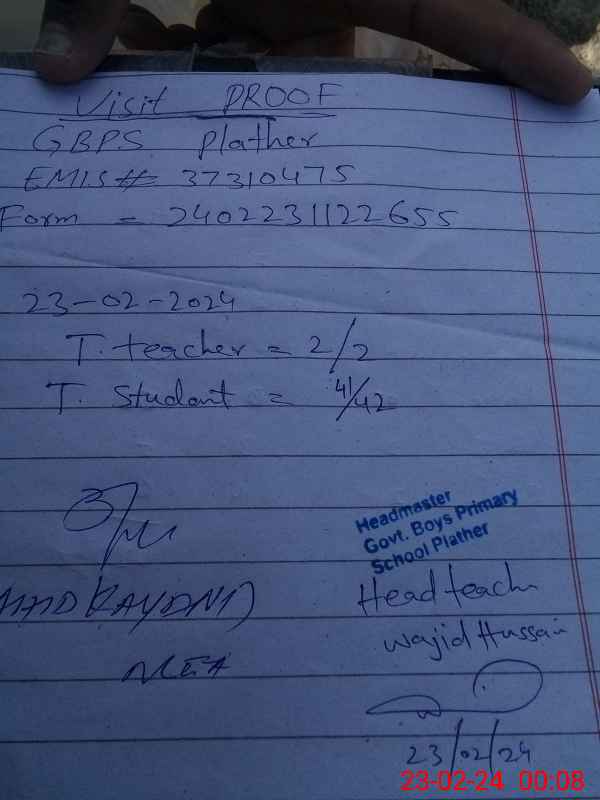 Visit PROOF
GBPS Plather
EMIS# 37310475
Form = 2402231122655
23-02-2024
T. teacher = 2/2
T. Student = 41/42
Headmaster
Govt. Boys Primary
School Plather
Head teach
Wajid Hussain
MEA
23/02/24
23-02-24 00:08